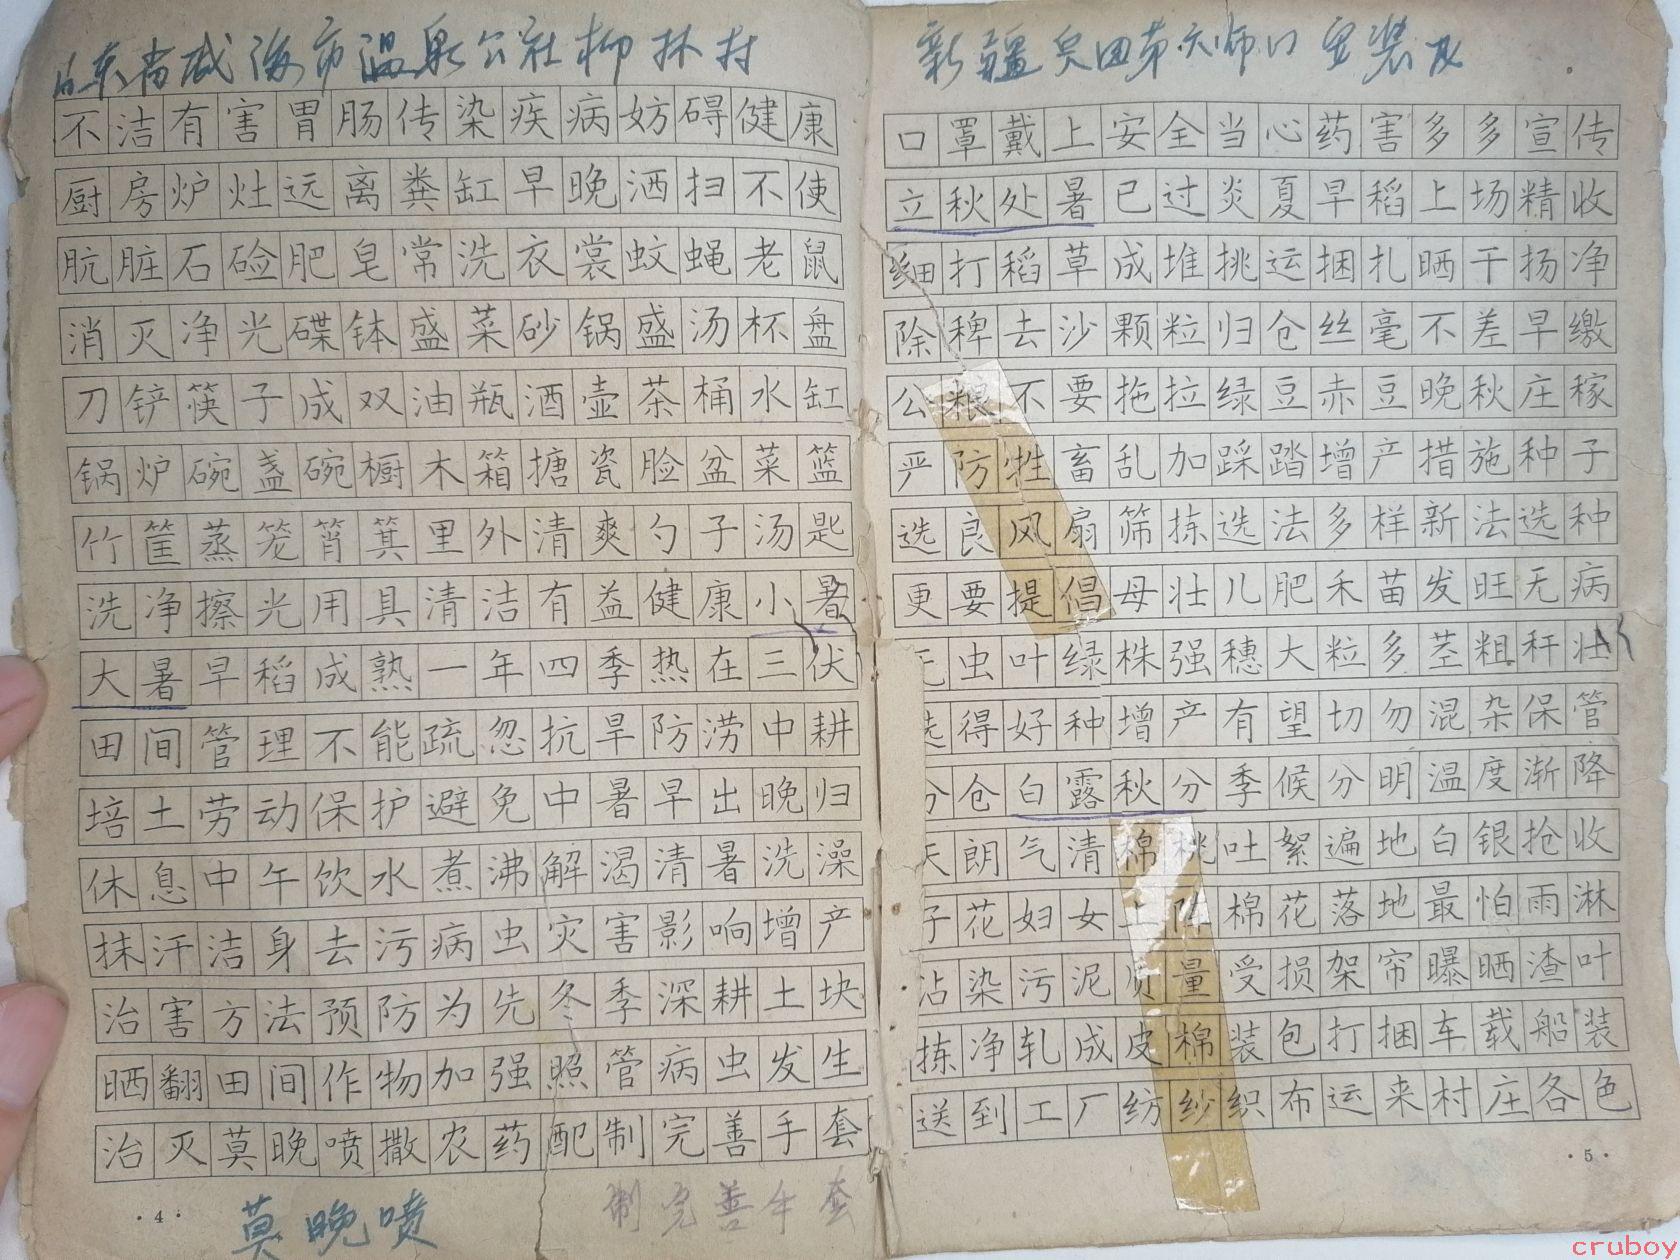 山东省威海市温泉公社柳林村
不洁有害胃肠传染疾病妨碍健康
厨房炉灶远离粪缸早晚洒扫不使
肮脏石硷肥皂常洗衣裳蚊蝇老鼠
消灭净光碟钵盛菜砂锅盛汤杯盘
刀铲筷子成双油瓶酒壶茶桶水缸
锅炉碗盏碗橱木箱搪瓷脸盆菜篮
竹筐蒸笼筲箕里外清爽勺子汤匙
洗净擦光用具清洁有益健康小暑
大暑早稻成熟一年四季热在三伏
田间管理不能疏忽抗旱防涝中耕
培土劳动保护避免中暑早出晚归
休息中午饮水煮沸解渴清暑洗澡
抹汗洁身去污病虫灾害影响增产
治害方法预防为先冬季深耕土块
晒翻田间作物加强照管病虫发生
治灭莫晚喷撒农药配制完善手套
·4·
莫晚喷
制完善手套
新疆兵团第六师
安装
口罩戴上安全当心药害多多宣传
立秋处暑已过炎夏早稻上场精收
细打稻草成堆挑运捆扎晒干扬净
除稗去沙颗粒归仓丝毫不差早缴
公粮不要拖拉绿豆赤豆晚秋庄稼
严防牲畜乱加踩踏增产措施种子
选良风扇筛拣选法多样新法选种
更要提倡母壮儿肥禾苗发旺无病
无虫叶绿株强穗大粒多茎粗秆壮
选得好种增产有望切勿混杂保管
分仓白露秋分季候分明温度渐降
天朗气清棉桃吐絮遍地白银抢收
子花妇女上阵棉花落地最怕雨淋
沾染污泥质量受损架帘曝晒渣叶
拣净轧成皮棉装包打捆车载船装
送到工厂纺纱织布运来村庄各色
·5·
cruboy